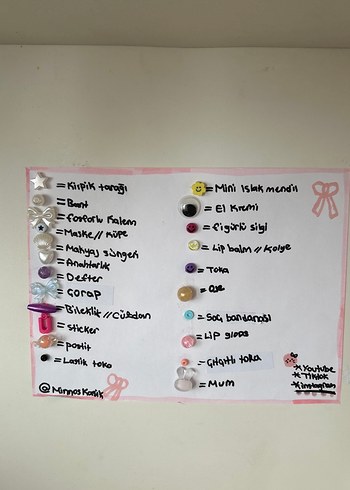 = Kirpik tarağı
= Bant
= fosforlu kalem
= Maske // küpe
= Makyaj süngeri
= Anahtarlık
= Defter
= Çorap
= Bileklik // Cüzdan
= sticker
= postit
= Lastik toka
@Minnoskonsik
= Mini ıslak mendil
= El Kremi
= figürlü silgi
= Lip balm // Kolye
= Toka
= Oje
= Saç bandanası
= Lip gloss
= Çıtçıtlı toka
= Mum
*Youtube
*Tiktok
*instagram